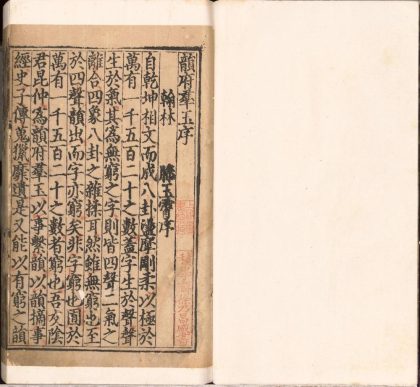 韻府羣玉序
翰林 滕玉霄序
自乾坤相文而成八卦盪摩剛柔以極於
萬有一千五百二十之數蓋字生於聲聲
生於氣其為無窮之字則皆四聲二氣之
離合四象八卦之雜揉耳然雖無窮也至
於四聲韻出而字亦窮矣非字窮也囿於
萬有一千五百二十之數者窮也吾友陰
君昆仲為韻府羣玉以事繫韻以韻摘事
經史子傳蒐獵靡遺是又能以有窮之韻